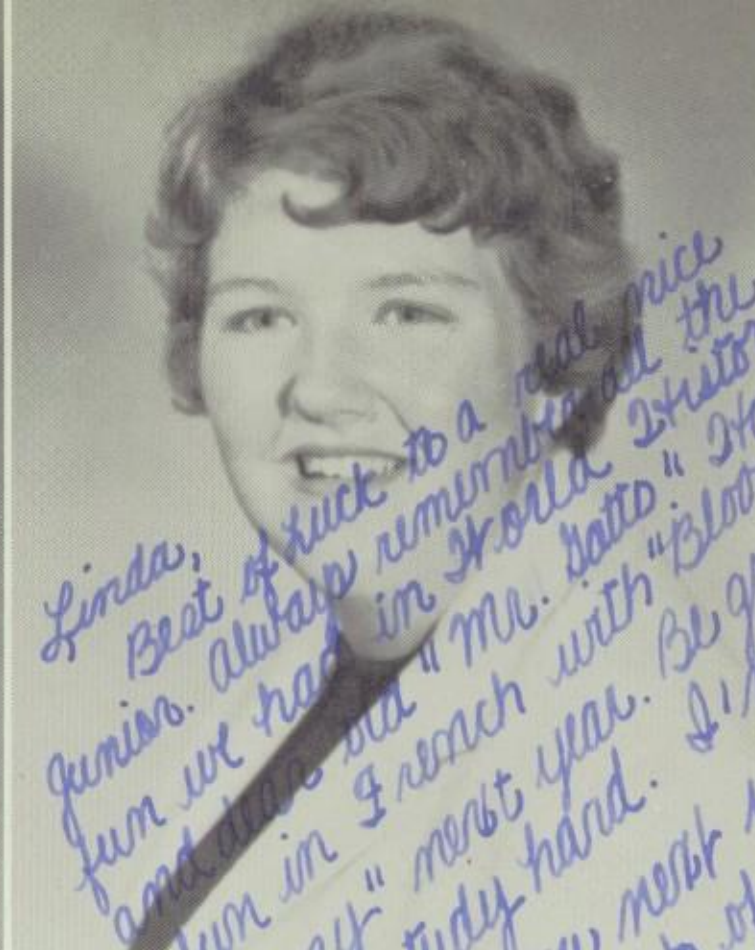 Linda,
Best of luck to a real nice
junior. Always remember all the
fun we had in World Histo
and dear old "Mr. Gatto". Ha
fun in French with "Bloo
ey" next year. Be g
tudy hard. I'l
next
of